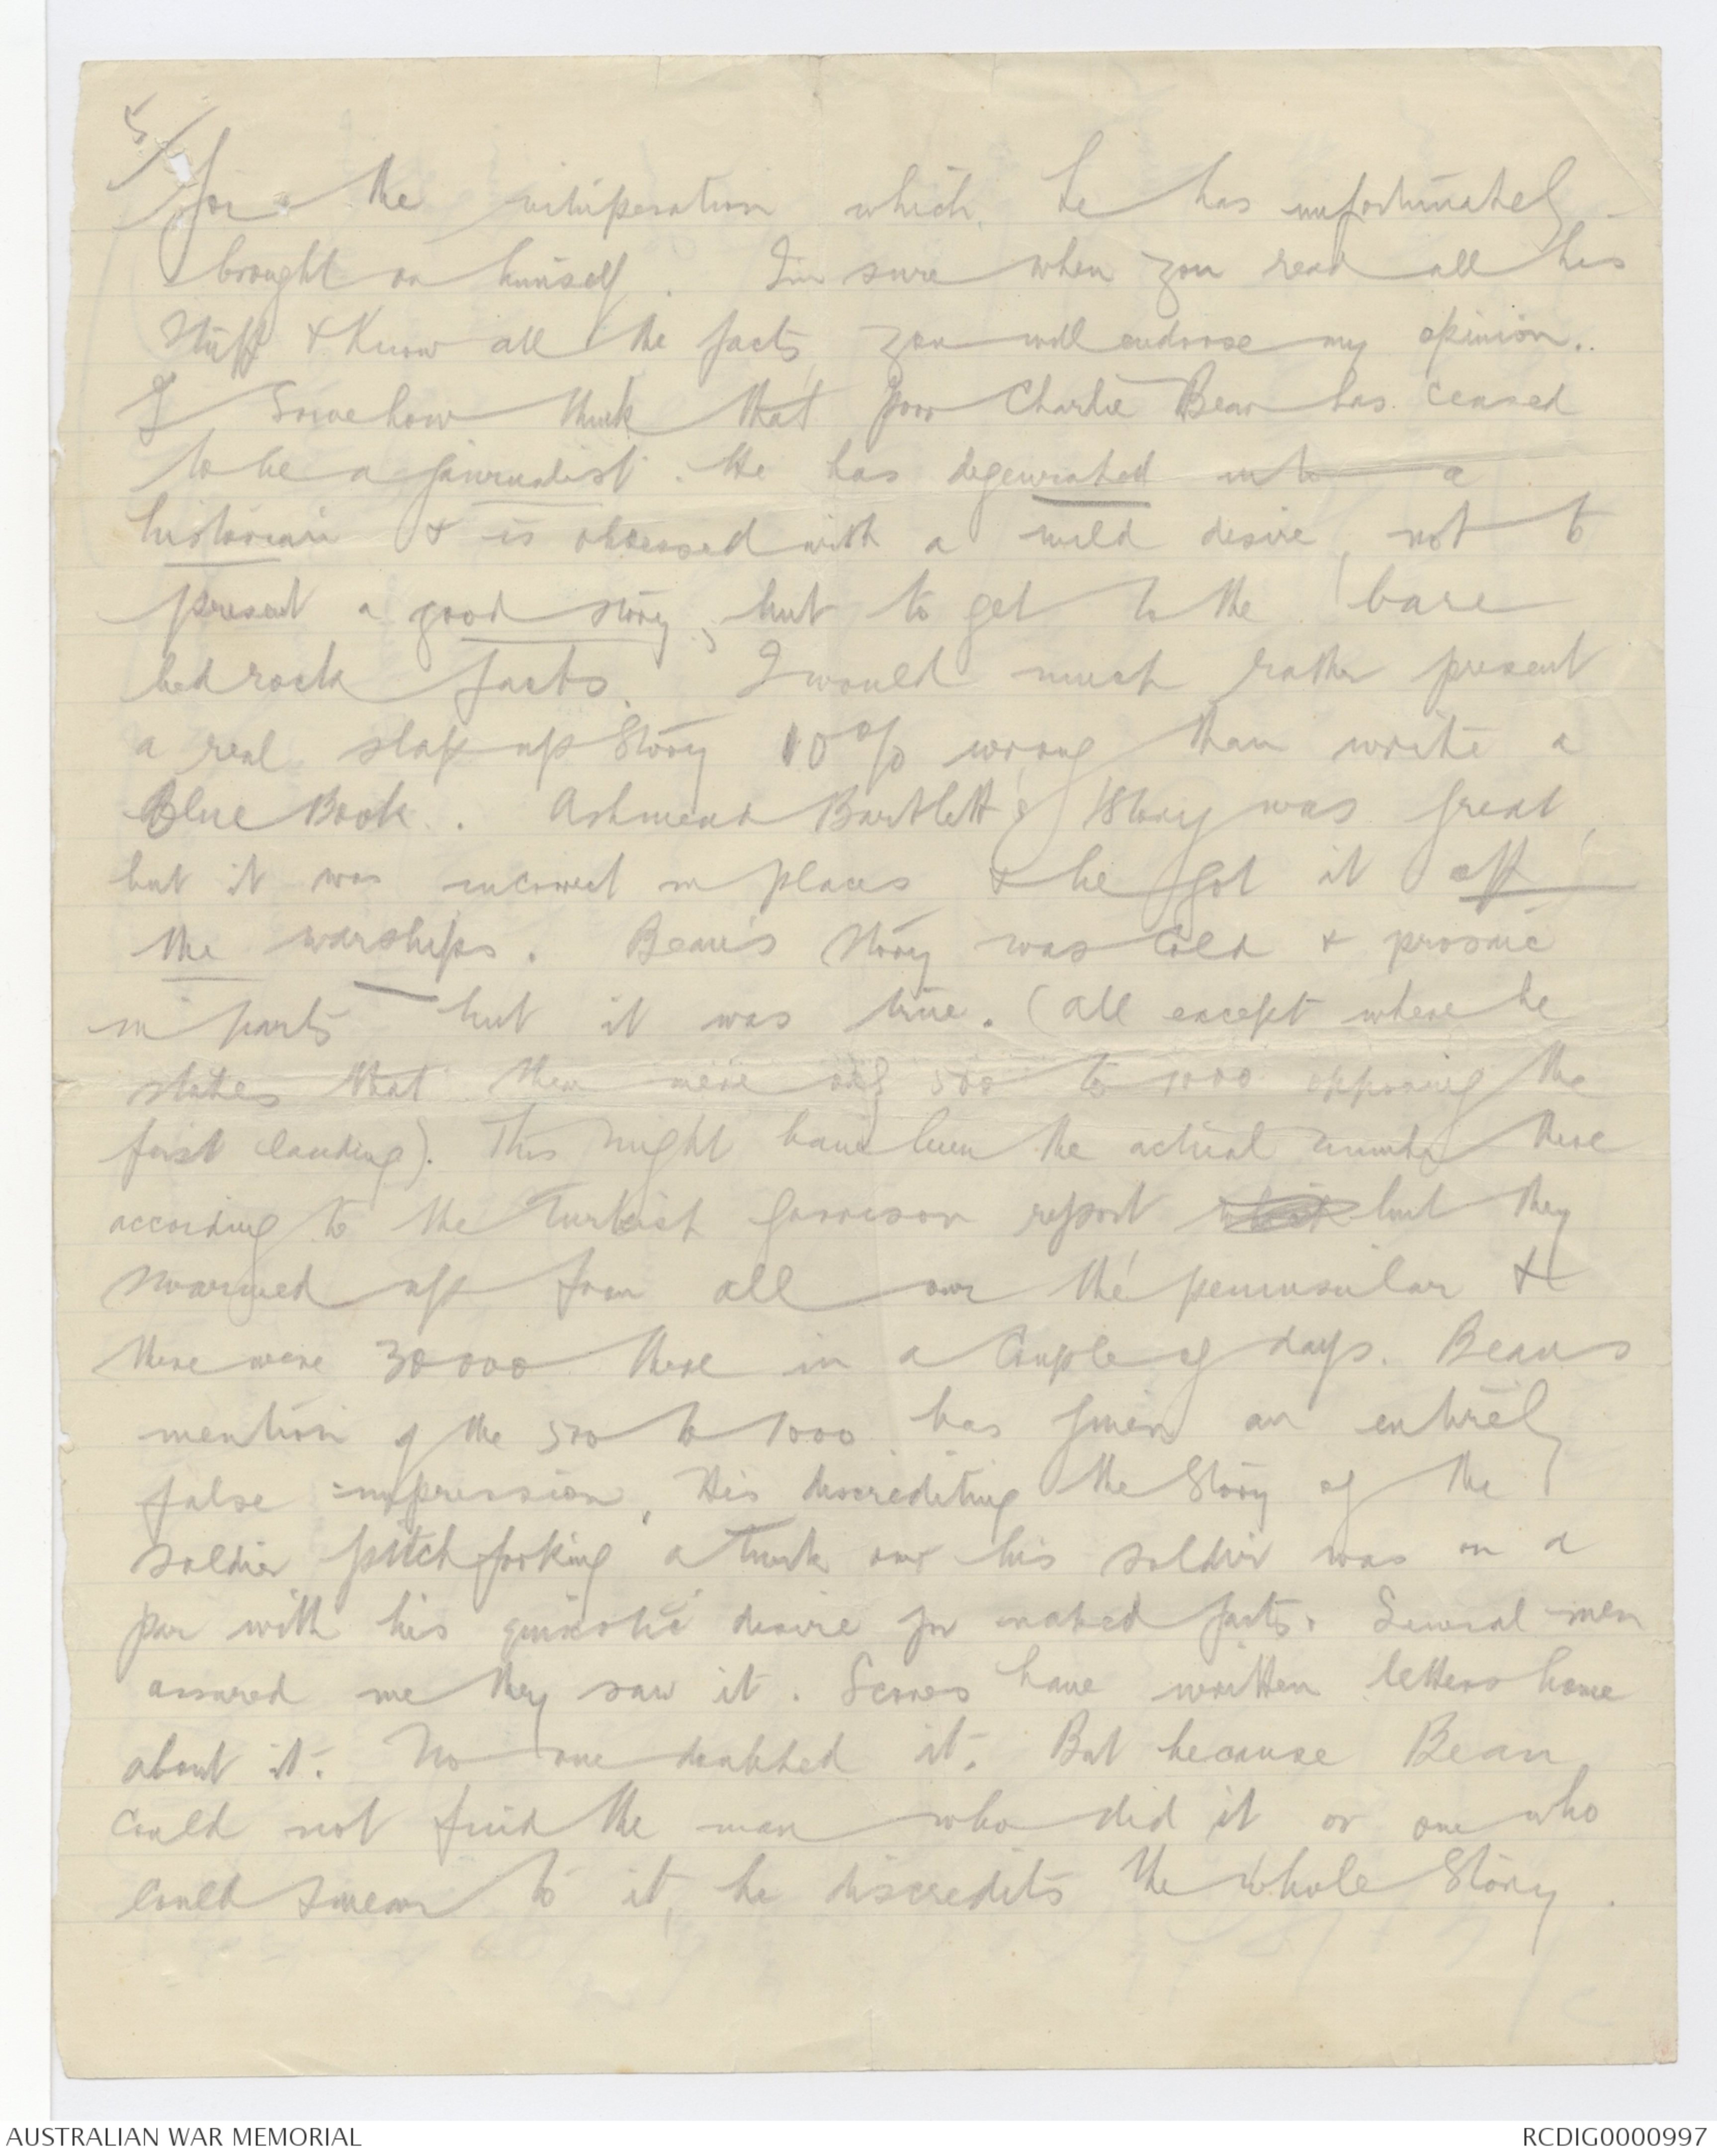 5/
for the vituperation which he has unfortunately
brought on himself. I'm sure when you read all his
stuff & know all the facts you will endorse my opinion.
I somehow think that poor Charlie Bean has ceased
to be a journalist. He has degenerated into a
historian & is obsessed with a mild desire, not to
present a good story, but to get to the bare
bedrock facts. I would much rather present
a real slap up story 10% wrong than write a
Blue Book. Ashmead Bartlett's story was great,
but it was incorrect in places & he got it off
the warships. Bean's story was cold & prosaic
in parts but it was true. (All except where he
states that there were only 500 to 1000 opposing the
first landing). This might have been the actual number there
according to the Turkish garrison report but they
swarmed up from all over the peninsular &
there were 30000 there in a couple of days. Beans
mention of the 500 to 1000 has given an entirely
false impression. His discrediting the story of the
soldier pitchforking a Turk over his soldier was on a
par with his quixotic desire for naked facts. Several men
assured me they saw it. Scores have written letters home
about it. No one doubted it. But because Bean
could not find the man who did it or one who
could swear to it, he discredits the whole story.
AUSTRALIAN WAR MEMORIAL
RCDIG0000997